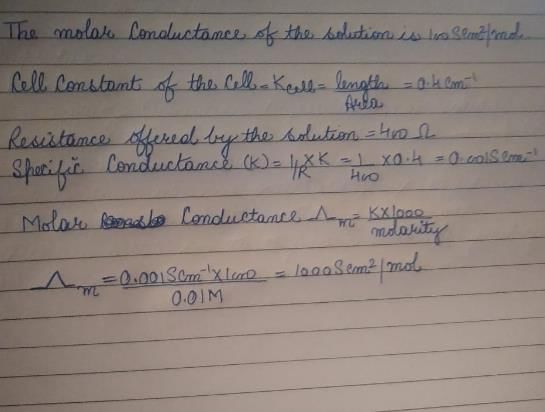 The molar Conductance of the solution is 100 Scm²/mol.
Cell Constant of the Cell = Kcell = length/Area = 0.4 cm⁻¹
Resistance offered by the solution = 400 Ω
Specific Conductance (K) = 1/R × K = 1/400 × 0.4 = 0.001 S cm⁻¹
Molar Conductance Λm = K×1000/molarity
Λm = 0.001 S cm⁻¹ × 1000/0.01M = 1000 S cm²/mol